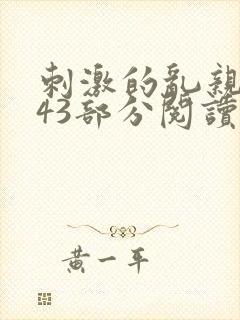 刺激的亂親
43部分閱讀
黄一平